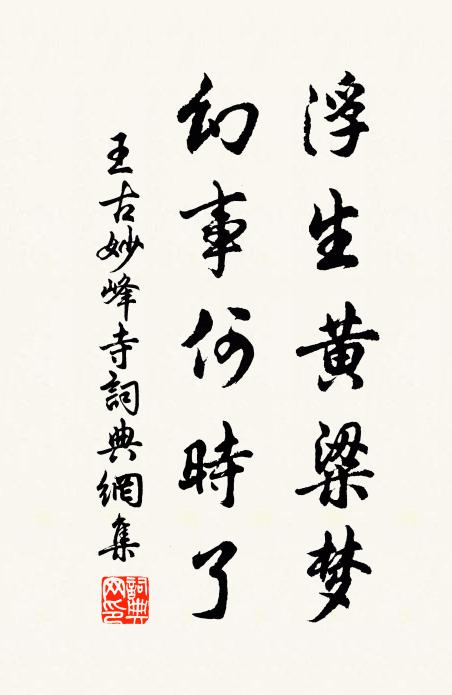 浮生黄粱梦
幻事何時了
王古妙峰寺詞典網集
詞典網印